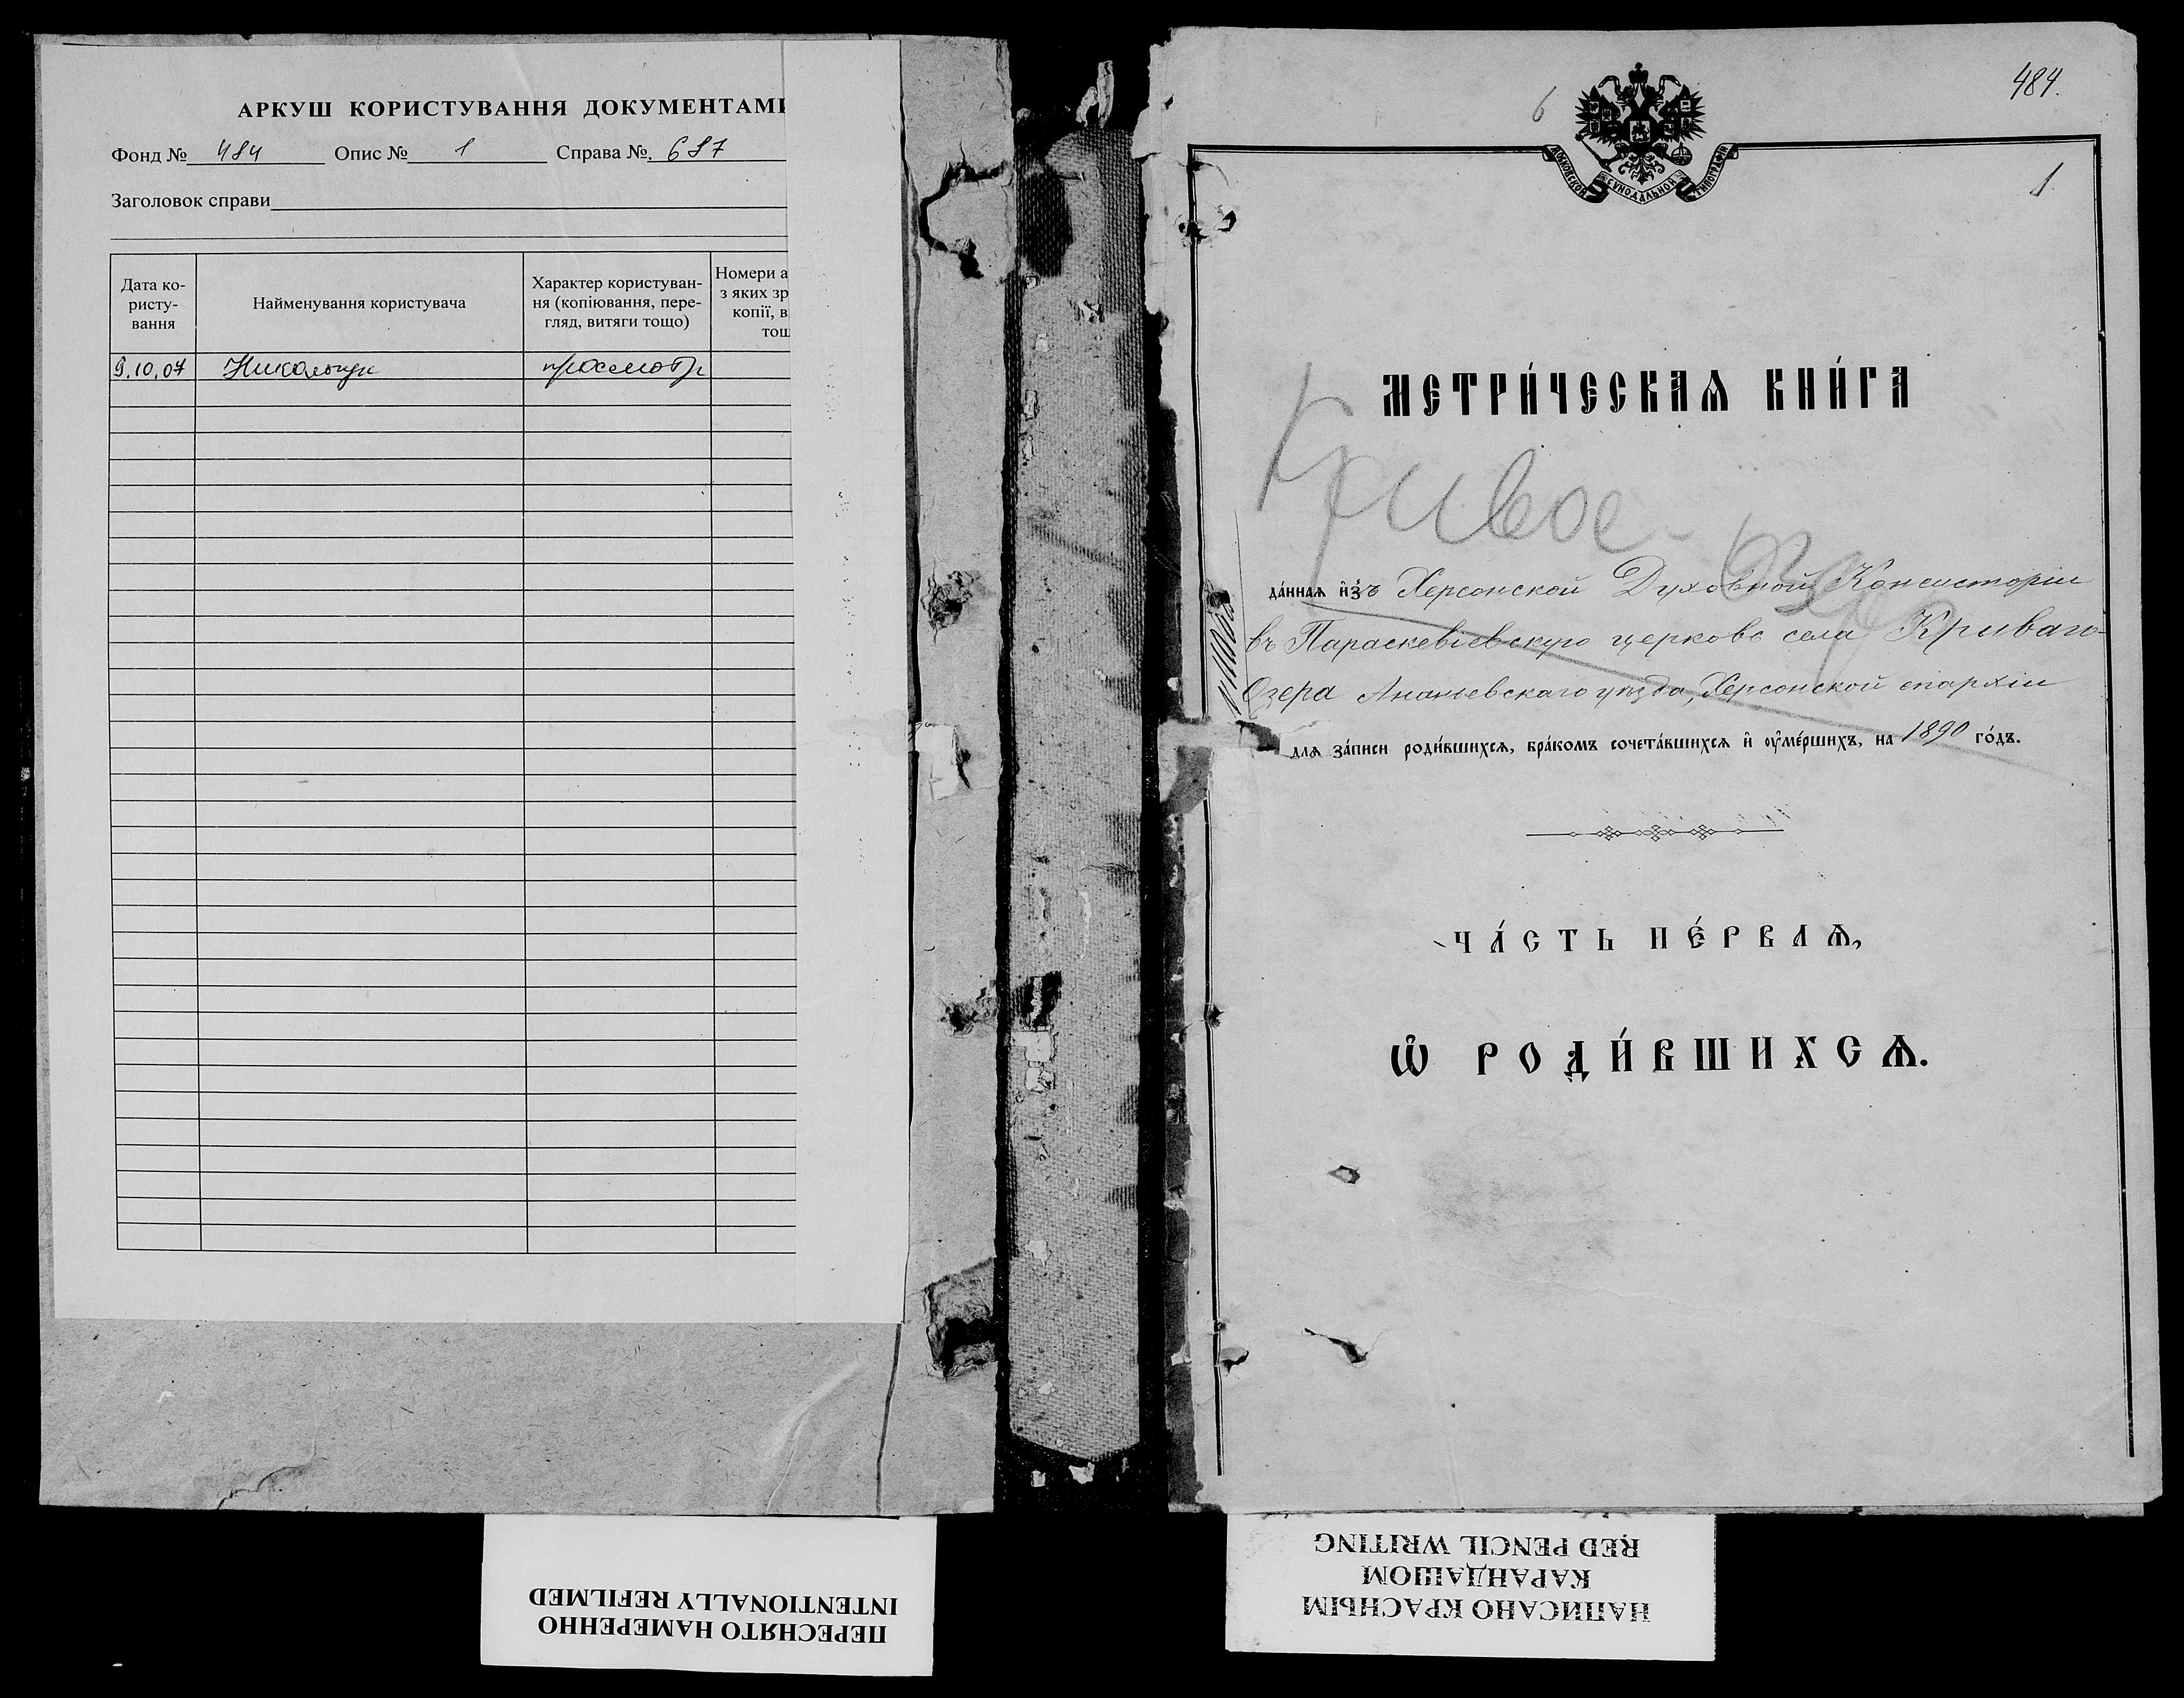 АРКУШ КОРИСТУВАННЯ ДОКУМЕНТАМИ
Фонд № 484 Опис № 1 Справа № 687
Заголовок справи
Дата ко-
ристу-
вання
Найменування користувача
Характер користуван-
ня (копіювання, пере-
гляд, витяги тощо)
Номери а
з яких зр
копії, в
тощ
9.10.07 просмотр
484.
6
МОСКОВСКОЙ СУНОДАЛЬНОЙ ТИПОГРАФІИ
1
МЕТРИ́ЧЕСКАѦ КНИ́ГА
Кривое-Озеро
да́ннаѧ и҆з̾ъ Херсонской Духовной Консисторіи
въ Параскевіевскую церковь села Криваго-
Озера Ананьевскаго уѣзда, Херсонской епархіи
для за́писи роди́вшихсѧ, бра́комъ сочета́вшихсѧ и҆ ѹ҆ме́ршихъ, на 1890 го́дъ.
ЧА́СТЬ ПЕ́РВАѦ,
Ѡ҆ РОДИ́ВШИХСѦ.
ПЕРЕСНЯТО НАМЕРЕННО
INTENTIONALLY REFILMED
НАПИСАНО КРАСНЫМ
КАРАНДАШОМ
RED PENCIL WRITING